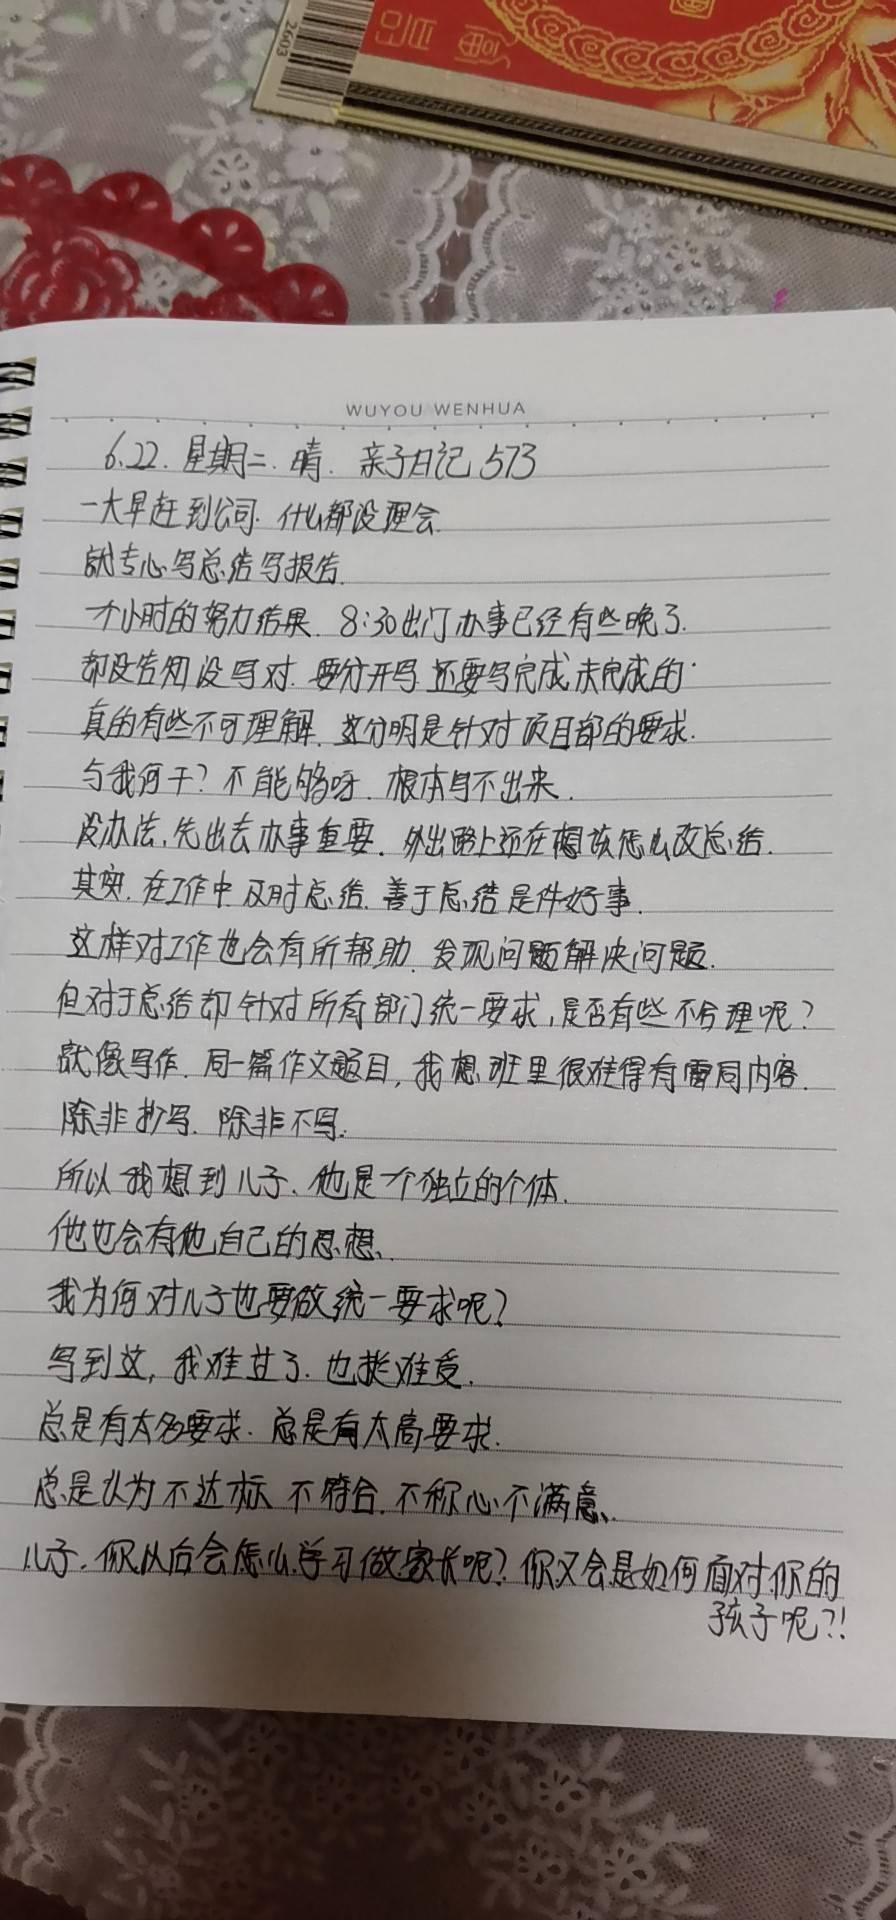 2603
WUYOU WENHUA
6.22. 星期二. 晴. 亲子日记 573
一大早赶到公司. 什么都没理会.
就专心写总结写报告.
个小时的努力结果. 8:30出门办事已经有些晚了.
却没告知没写对. 要分开写 还要写完成未完成的.
真的有些不可理解. 这分明是针对项目部的要求.
与我何干? 不能够呀. 根本写不出来.
没办法, 先出去办事重要. 外出路上还在想该怎么改总结.
其实. 在工作中及时总结. 善于总结是件好事.
这样对工作也会有所帮助. 发现问题解决问题.
但对于总结却针对所有部门统一要求, 是否有些不合理呢?
就像写作. 同一篇作文题目, 我想班里很难得有雷同内容.
除非抄写. 除非不写.
所以我想到儿子. 他是个独立的个体.
他也会有他自己的思想.
我为何对儿子也要做统一要求呢?
写到这, 我难过了. 也挺难受.
总是有太多要求. 总是有太高要求.
总是认为不达标 不符合. 不称心不满意.
儿子. 你以后会怎么学习做家长呢? 你又会是如何面对你的
孩子呢?!